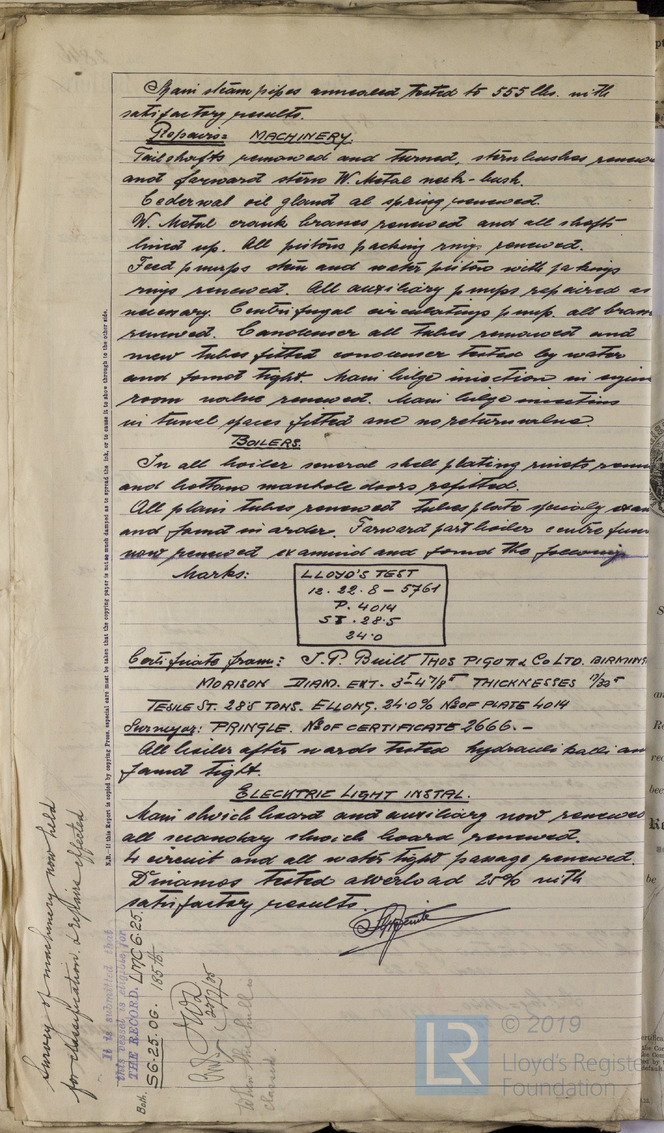 Main steam pipes annealed tested to 555 lbs. with
satisfactory results.
Repairs: MACHINERY.
Tail shafts removed and turned, stern bushes renew
and forward stern W. Metal neck-bush.
Cederval oil gland al spring renewed.
W. Metal crank brasses renewed and all shafts
lined up. All pistons packing rings renewed.
Feed pumps stem and water pistons with packings
rings renewed. All auxiliary pumps repaired as
necenary. Centrifugal circulatings pump. all brass
renewed. Condenser all tubes removed and
new tubes fitted condenser tested by water
and found tight. Main bilge injection in engin
room valve renewed. Main bilge
in tunnel spaces fitted one no return valve.
BOILERS.
In all boiler several shell plating rivets
and bottom manhole doors refitted.
All plain tubes renewed tubes plate
and found in order. Forward port boiler centre furn
now renewed examined and found the following
Marks: LLOYD'S TEST
12. 22. 8 - 5761
P. 4014
ST. 28.5
24.0
Certificate from: J.P. Built THOS PIGOTT & CO LTD. BIRMIN
MORISON DIAM. EXT. 3'-4 7/8" THICKNESSES
TESILE ST. 28.5 TONS. ELLONG. 24.0% No OF PLATE 4014
Surveyor: PRINGLE. No OF CERTIFICATE 2666.-
All boiler after wards tested hydraulically an
found tight.
ELECKTRIC LIGHT INSTAL.
Main switch board and auxiliary now renewed
all secondary switch board renewed.
4 circuit and all water tight passage renewed.
Dinamos tested overload 25% with
satisfactory results
N.B.-If this Report is copied by copying Press, especial care must be taken that the copying paper is not so much damped as to spread the ink, or to cause it to show through to the other side.
Survey of machinery now held
for classification. & repairs effected
It is submitted that
this vessel is eligible for
THE RECORD. LMC 6.25.
Both. S 6.25. OG. 185 lb.
27/7/25
When the hull is
classed.
LR © 2019
Lloyd's Register
Foundation